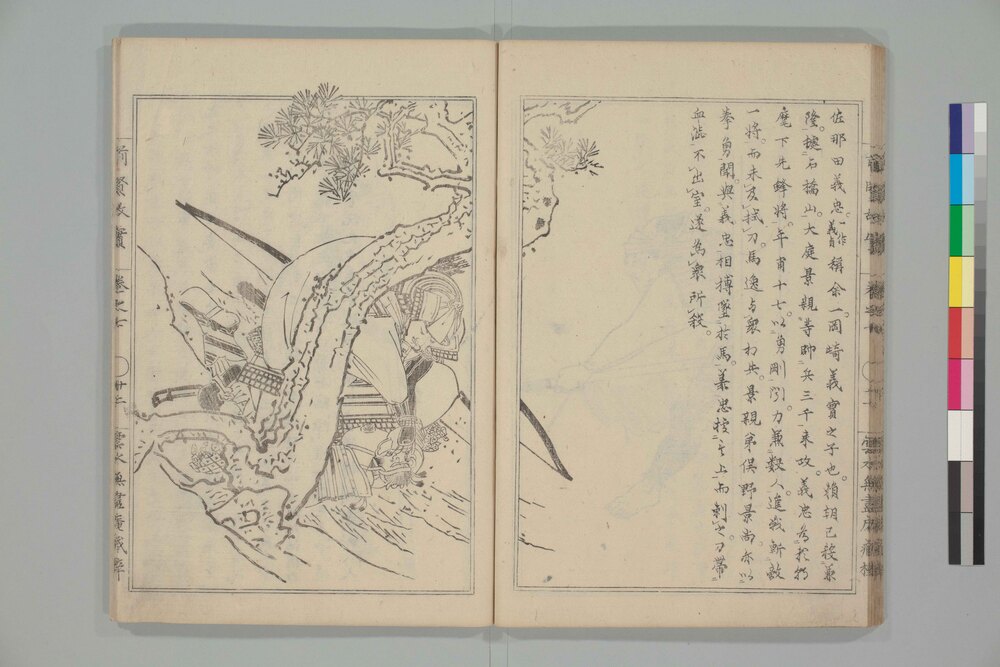 佐那田義忠。一作義貞稱余一。岡崎義實之子也。賴朝已殺兼
隆。據石橋山。大庭景親等帥兵三千來攻。義忠為
麾下先鋒將。年甫十七。以勇剛聞。力兼數人。進戰斬敵
一將。而未及拭刀。馬逸與眾相失。景親弟俣野景尚亦以
拳勇聞。與義忠相搏墜於馬。義忠據其上而刺之。刀帶
血澁不出室。遂為眾所殺。
前賢故實
卷之七
廿二
雲水無盡庵藏梓